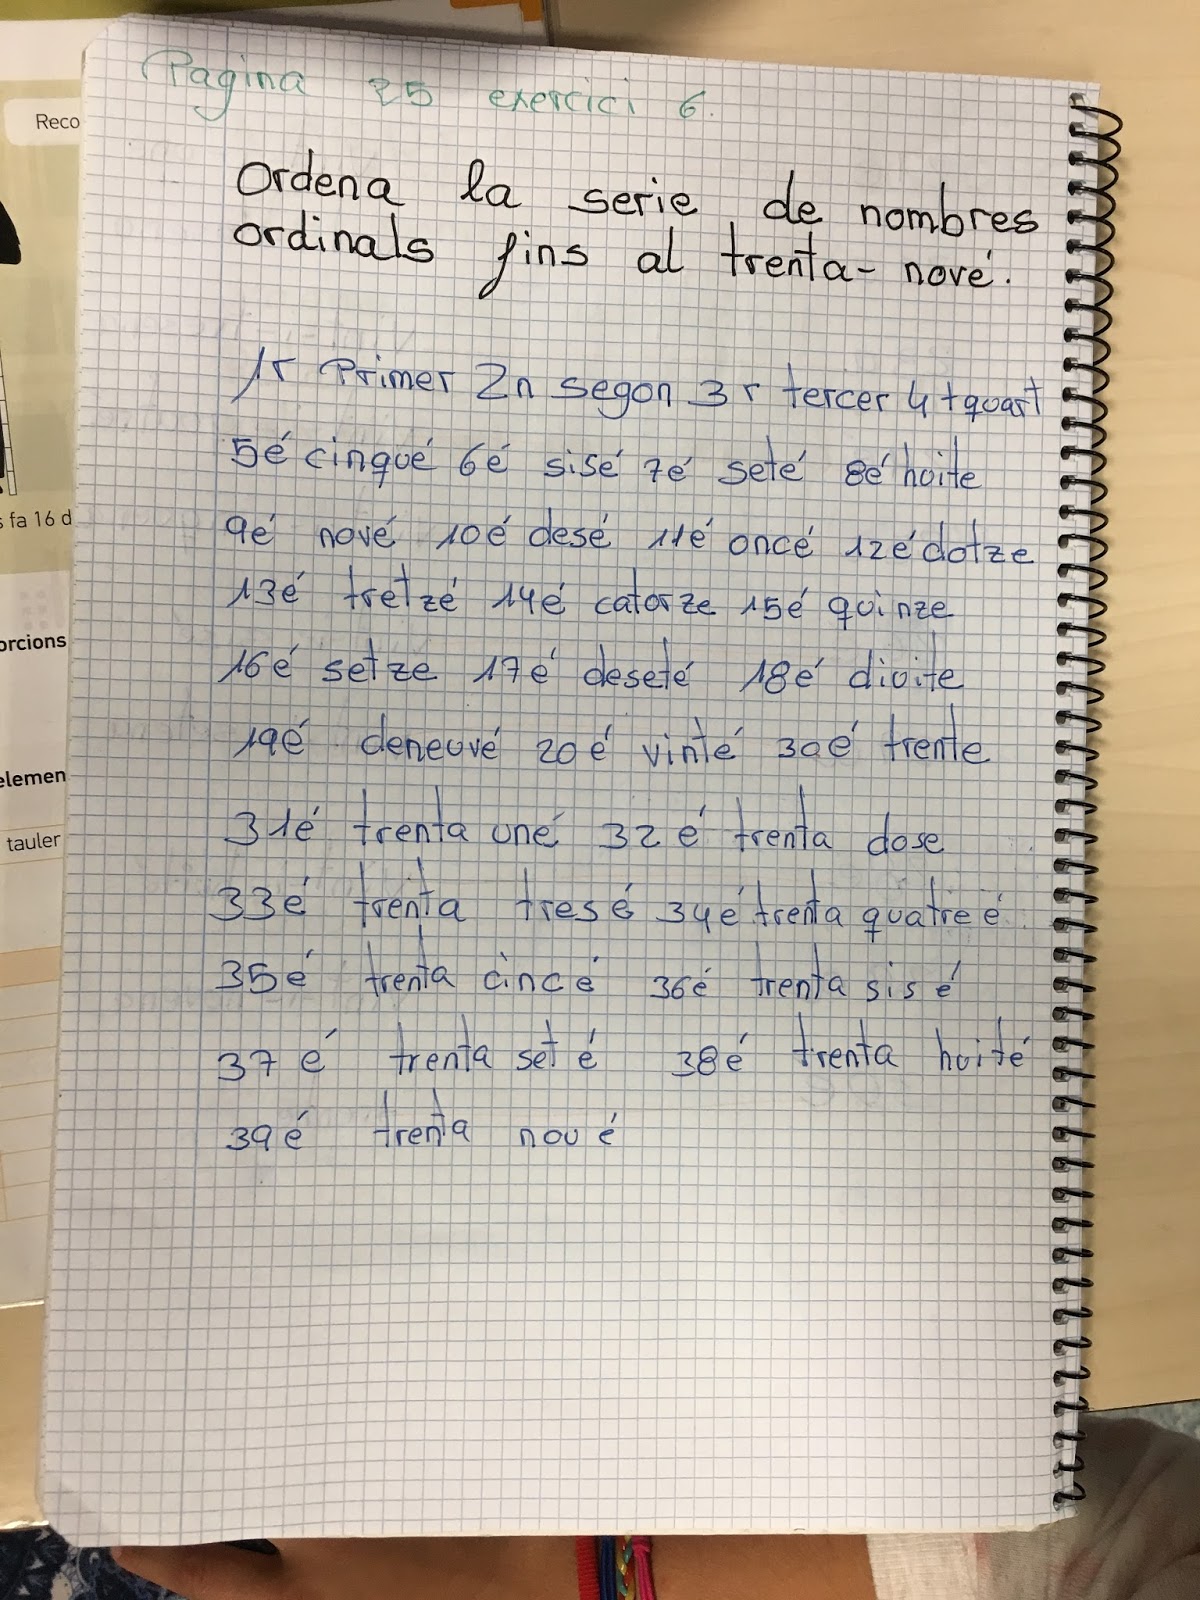 Pagina 25 exercici 6.
Ordena la serie de nombres
ordinals fins al trenta-nové.
1r Primer 2n segon 3r tercer 4t quart
5é cinqué 6é sisé 7é seté 8é huite
9é nové 10é desé 11é oncé 12é dotze
13é tretzé 14é catorze 15é quinze
16é setze 17é deseté 18é divite
19é deneuvé 20é vinté 30é trente
31é trenta uné 32é trenta dose
33é trenta tresé 34é trenta quatreé
35é trenta cincé 36é trenta sisé
37é trenta seté 38é trenta huité
39é trenta nové
Reco
s fa 16 d
orcions
elemen
tauler